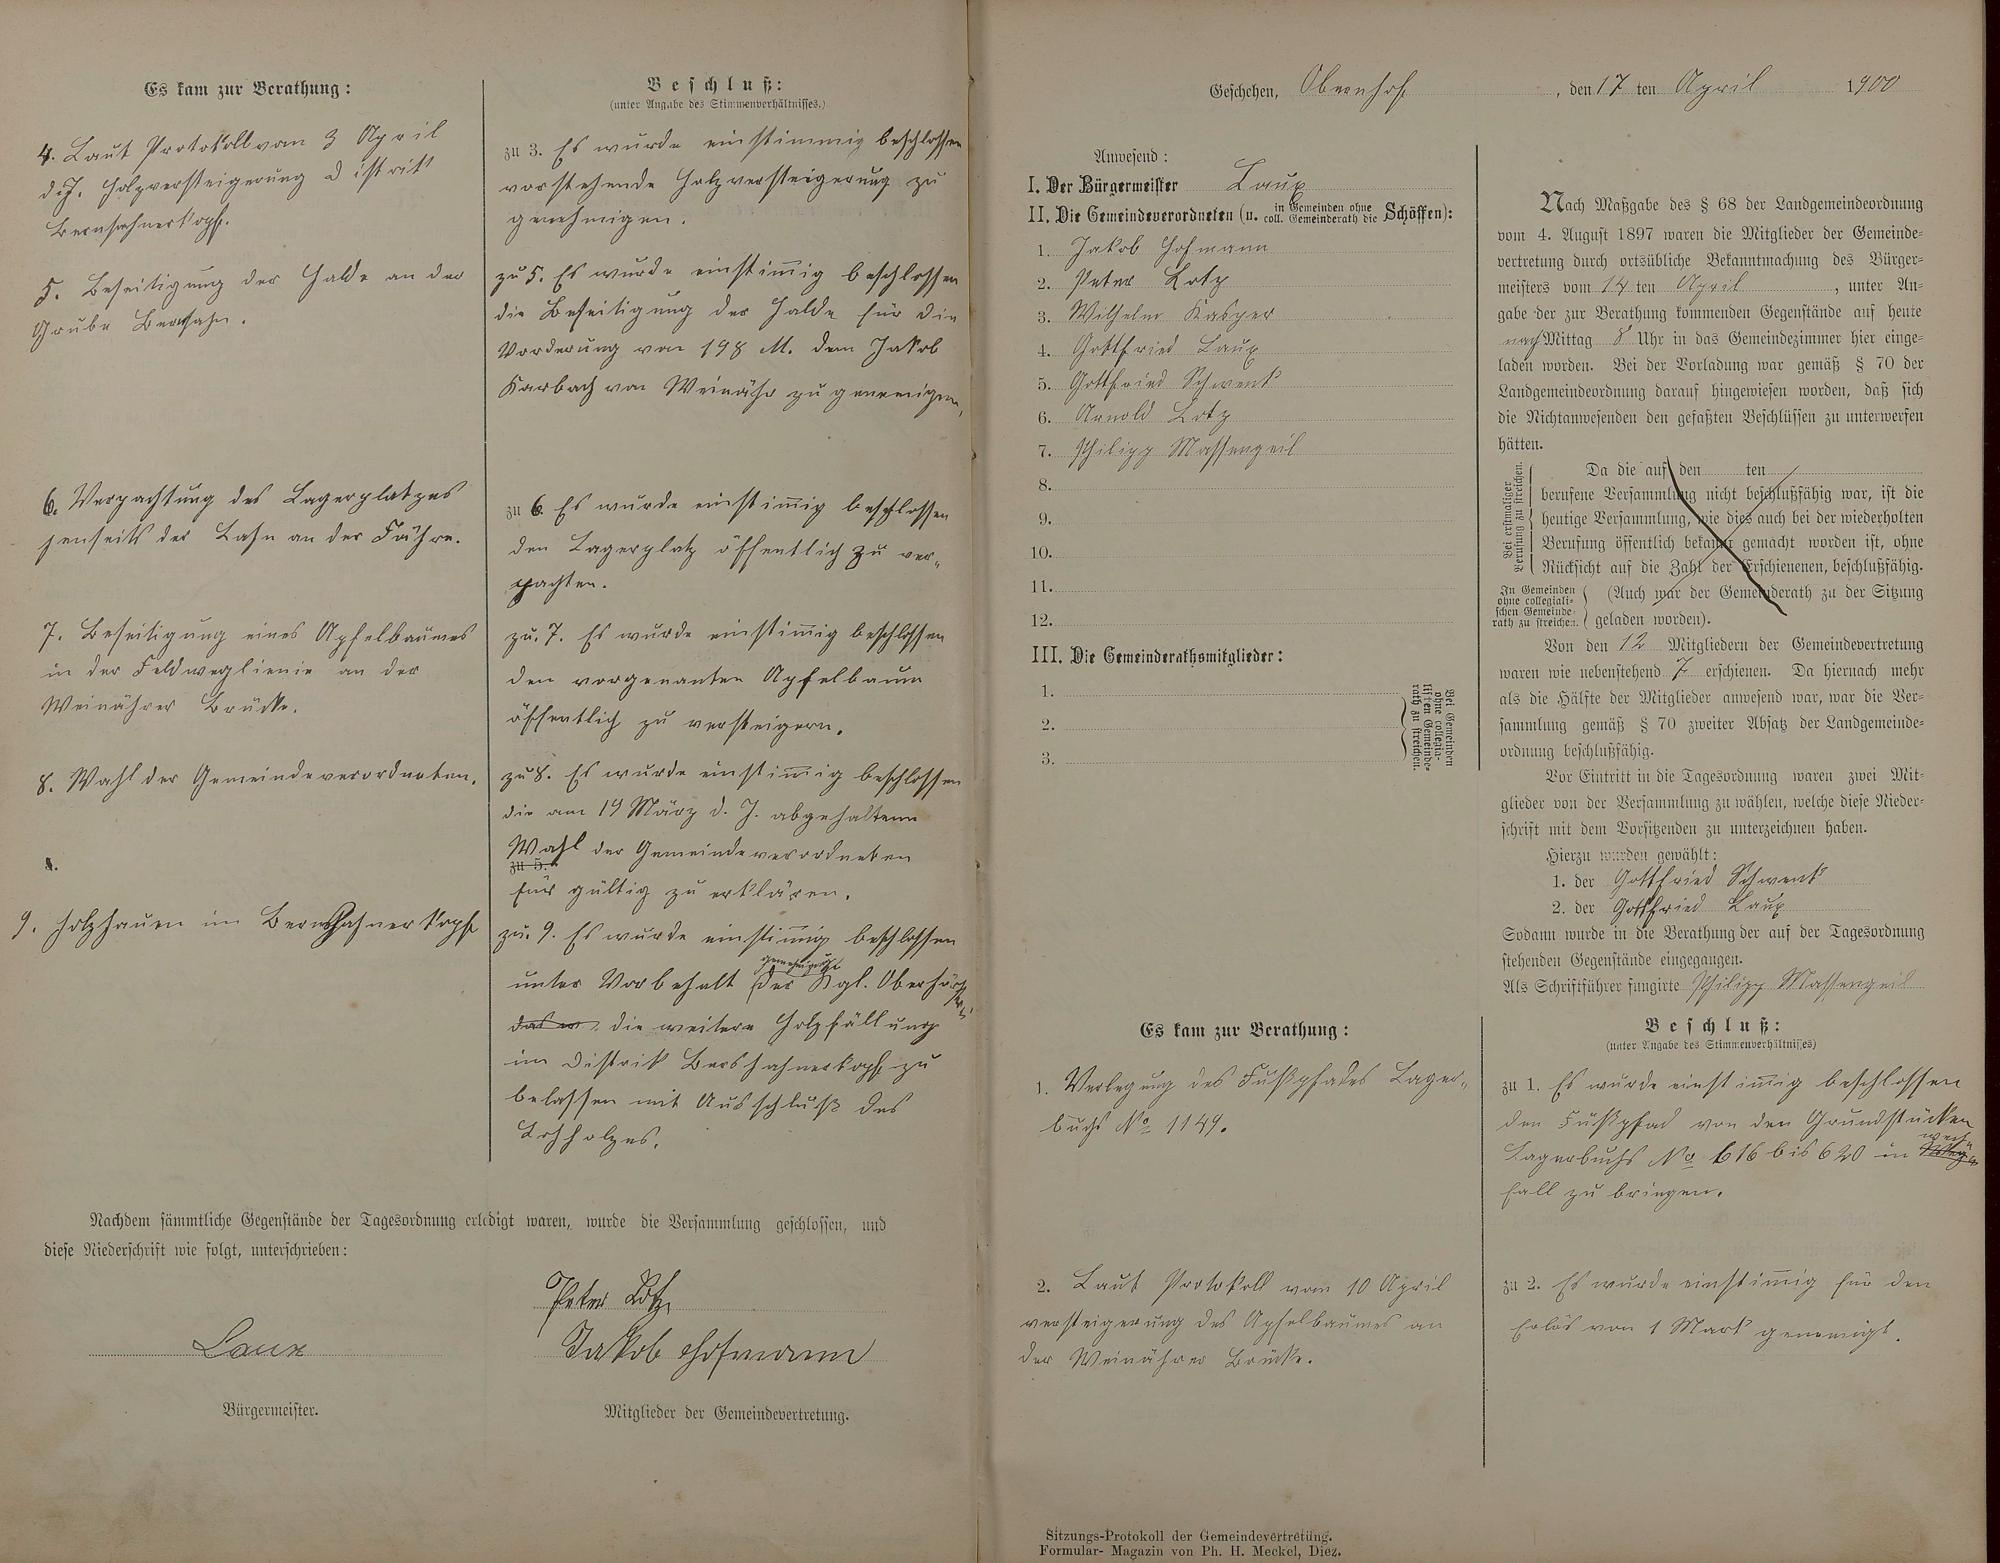 Es kam zur Berathung:
4. Laut Protokoll vom 3 April
d. J. Holzversteigerung Distrikt
Bernshahnerkopf.
5. Beseitigung der Halde an der
Grube Bernhahn.
6. Verpachtung des Lagerplatzes
jenseits der Lahn an der Fähre.
7. Beseitigung eines Apfelbaumes
in der Feldweglienie an der
Weinährer Brücke.
8. Wahl der Gemeindeverordneten.
9. Holzhauen im Bernshahnerkopf
Beschluß:
(unter Angabe des Stimmenverhältnisses.)
zu 3. Es wurde einstimmig beschlossen
vorstehende Holzversteigerung zu
genehmigen.
zu 5. Es wurde einstim̄ig beschlossen
die Beseitigung der Halde für die
Vorderung von 198 M. dem Jakob
Karbach von Weinähr zu genemigen,
zu 6. Es wurde einstim̄ig beschlossen
den Lagerplatz öffentlich zu ver-
pachten.
zu. 7. Es wurde einstim̄ig beschlossen
den vorgenanten Apfelbaum
öffentlich zu versteigern.
zu 8. Es wurde einstim̄ig beschlossen
die am 19 März d. J. abgehaltene
Wahl der Gemeindeverordneten
zu 5.
für gültig zu erklären.
zu. 9. Es wurde einstim̄ig beschlossen
unter Vorbehalt der Kgl. Oberförsterei
die weitere Holzfällung
im Distrik Bershahnerkopf zu
belassen mit Ausschluß des
Lohholzes.
Nachdem sämmtliche Gegenstände der Tagesordnung erledigt waren, wurde die Versammlung geschlossen, und
diese Niederschrift wie folgt, unterschrieben:
Peter Lotz
Laux
Jakob Hofmann
Bürgermeister.
Mitglieder der Gemeindevertretung.
Geschehen, Obernhof, den 17 ten April 1900
Anwesend:
I. Der Bürgermeister Laux
II. Die Gemeindeverordneten (u. in Gemeinden ohne coll. Gemeinderath die Schöffen):
1. Jakob Hofmann
2. Peter Lotz
3. Wilhelm Kasper
4. Gottfried Laux
5. Gottfried Schwenk
6. Arnold Lotz
7. Philipp Massengeil
8.
9.
10.
11.
12.
III. Die Gemeinderathsmitglieder:
1.
2.
3.
Bei Gemeinden
ohne collegia-
lischen Gemeinde-
rath zu streichen.
Nach Maßgabe des § 68 der Landgemeindeordnung
vom 4. August 1897 waren die Mitglieder der Gemeinde-
vertretung durch ortsübliche Bekanntmachung des Bürger-
meisters vom 14 ten April, unter An-
gabe der zur Berathung kommenden Gegenstände auf heute
nach Mittag 8 Uhr in das Gemeindezimmer hier einge-
laden worden. Bei der Vorladung war gemäß § 70 der
Landgemeindeordnung darauf hingewiesen worden, daß sich
die Nichtanwesenden den gefaßten Beschlüssen zu unterwerfen
hätten.
Bei erstmaliger
Berufung zu streichen.
Da die auf den ten
berufene Versammlung nicht beschlußfähig war, ist die
heutige Versammlung, wie dies auch bei der wiederholten
Berufung öffentlich bekannt gemacht worden ist, ohne
Rücksicht auf die Zahl der Erschienenen, beschlußfähig.
In Gemeinden
ohne collegiali-
schen Gemeinde-
rath zu streichen.
(Auch war der Gemeinderath zu der Sitzung
geladen worden).
Von den 12 Mitgliedern der Gemeindevertretung
waren wie nebenstehend 7 erschienen. Da hiernach mehr
als die Hälfte der Mitglieder anwesend war, war die Ver-
sammlung gemäß § 70 zweiter Absatz der Landgemeinde-
ordnung beschlußfähig.
Vor Eintritt in die Tagesordnung waren zwei Mit-
glieder von der Versammlung zu wählen, welche diese Nieder-
schrift mit dem Vorsitzenden zu unterzeichnen haben.
Hierzu wurden gewählt:
1. der Gottfried Schwenk
2. der Gottfried Laux
Sodann wurde in die Berathung der auf der Tagesordnung
stehenden Gegenstände eingegangen.
Als Schriftführer fungirte Philipp Massengeil
Es kam zur Berathung:
1. Verlegung des Fußpfades Lager-
buchs No 1149.
2. Laut Protokoll vom 10 April
versteigerung des Apfelbaumes an
der Weinährer Brücke.
Beschluß:
(unter Angabe des Stimmenverhältnisses)
zu 1. Es wurde einstim̄ig beschlossen
den Fußpfad von den Grundstücken
Lagerbuchs No 616 bis 620 in weg-
fall zu bringen.
zu 2. Es wurde einstim̄ig für den
Erlös von 1 Mark genemigt.
Sitzungs-Protokoll der Gemeindevertretung.
Formular-Magazin von Ph. H. Meckel, Diez.